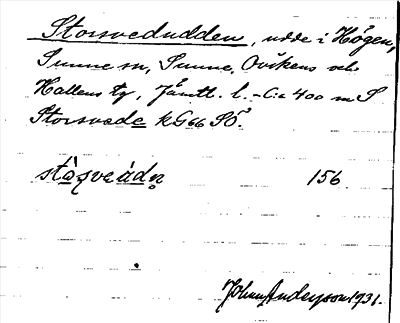 Storsvedudden, udde i Högen,
Sunne sn, Sunne, Ovikens och
Hallens tg, Jämtl. l. - C:a 400 m S
Storsvade kG66 SÖ.
156.
John Anderson 1931.